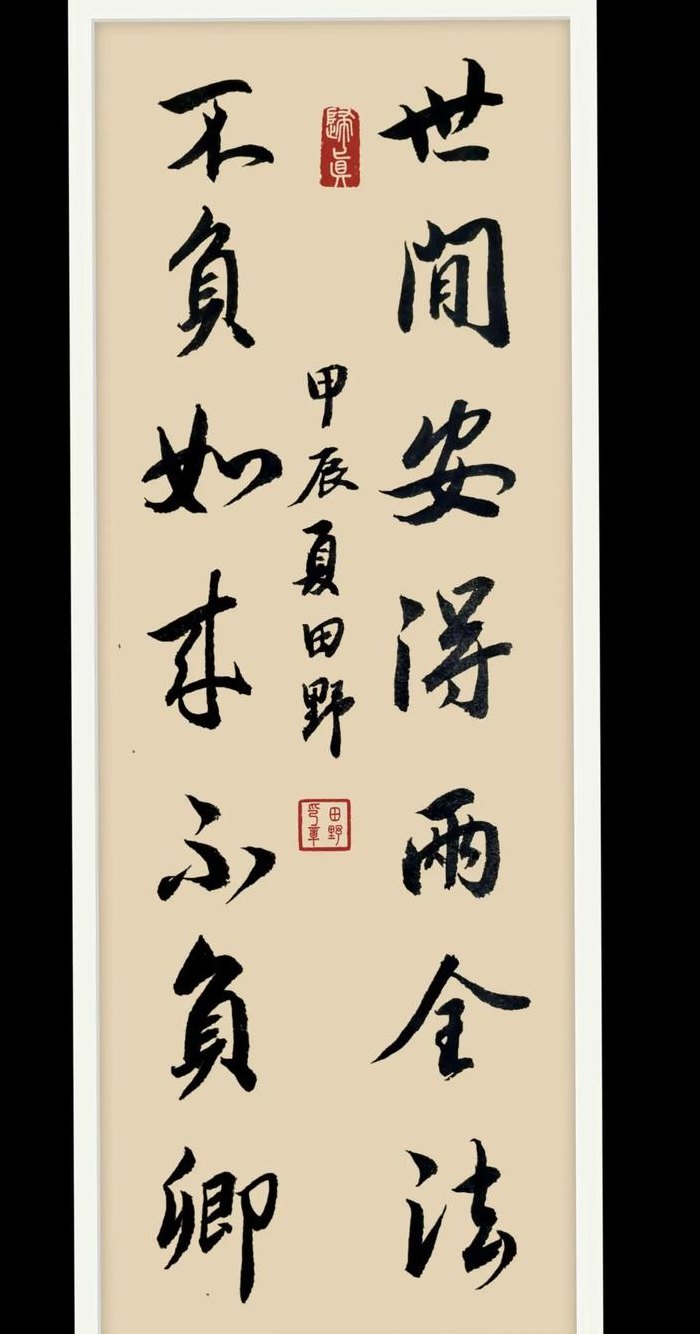 世間安得兩全法
歸真
甲辰夏田野
田野印章
不負如来不負卿